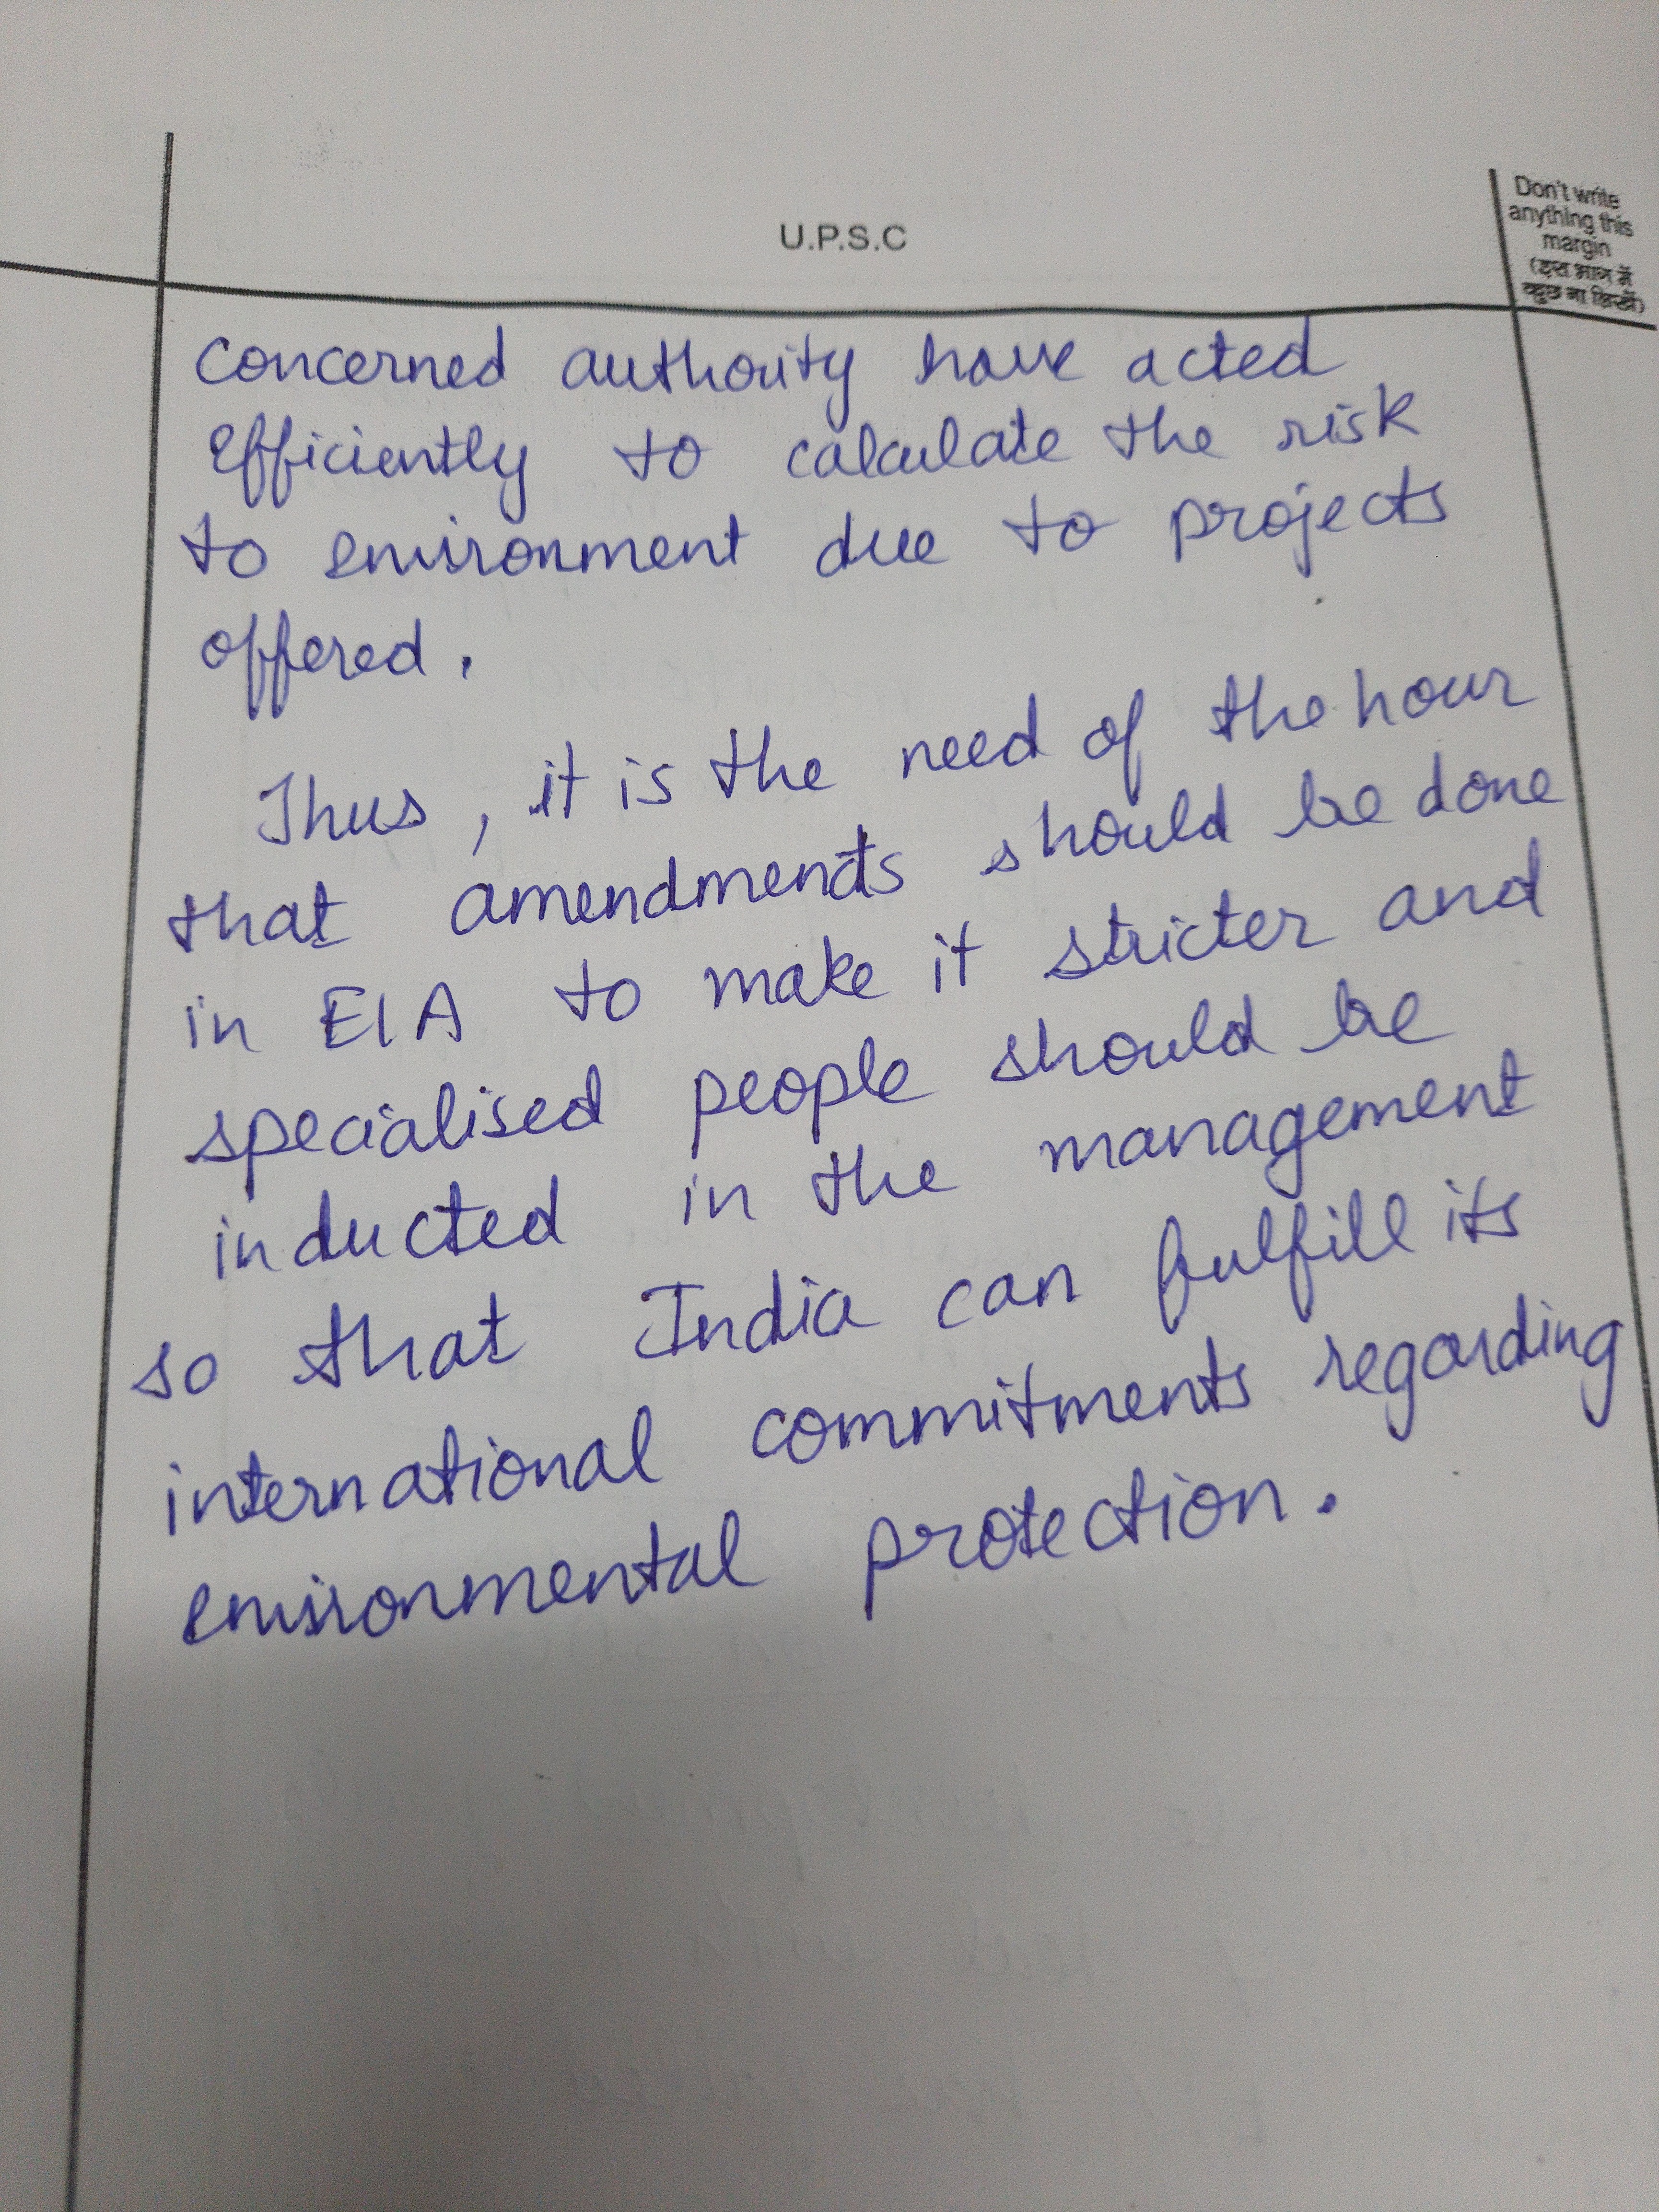 U.P.S.C
Don't write
anything this
margin
(इस भाग में
कुछ ना लिखें)
concerned authority have acted
Efficiently to calculate the risk
to environment due to projects
offered.
Thus, it is the need of the hour
that amendments should be done
in EIA to make it stricter and
specialised people should be
inducted in the management
so that India can fulfill its
international commitments regarding
environmental protection.